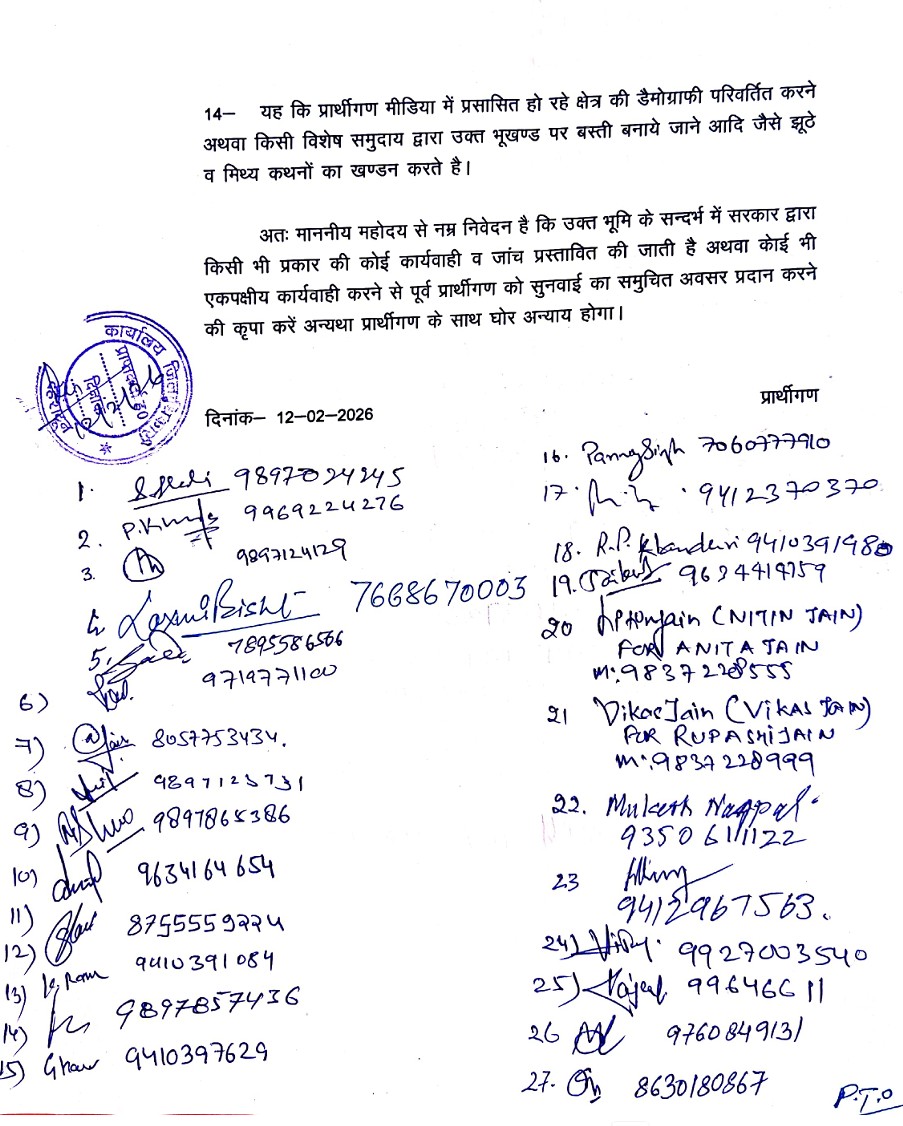 14— यह कि प्रार्थीगण मीडिया में प्रसासित हो रहे क्षेत्र की डैमोग्राफी परिवर्तित करने
अथवा किसी विशेष समुदाय द्वारा उक्त भूखण्ड पर बस्ती बनाये जाने आदि जैसे झूठे
व मिथ्य कथनों का खण्डन करते है।
अतः माननीय महोदय से नम्र निवेदन है कि उक्त भूमि के सन्दर्भ में सरकार द्वारा
किसी भी प्रकार की कोई कार्यवाही व जांच प्रस्तावित की जाती है अथवा कोई भी
एकपक्षीय कार्यवाही करने से पूर्व प्रार्थीगण को सुनवाई का समुचित अवसर प्रदान करने
की कृपा करें अन्यथा प्रार्थीगण के साथ घोर अन्याय होगा।
कार्यालय
दिनांक
दिनांक— 12-02-2026
प्रार्थीगण
1. 9897024245
2. 9969224276
3. 9897124129
Laxmi Bisht 7668670003
5. 7895586566
6) 9719771100
7) 8057753434.
8) 9897123731
9) 9897865386
10) 9634164654
11) 8755559224
12) 9410391084
13)
14) 9897857436
15) 9410397629
16. 7060777910
17. 9412370370
18. R.P. 9410391980
19. 9634419759
20 (NITIN JAIN)
FOR ANITA JAIN
M:9837228555
21 Vikas Jain (VIKAS JAIN)
FOR RUPASHI JAIN
M:9837228999
22. Mukesh Nagpal
9350611122
23
9412967563.
24) 9927003540
25) 99646611
26 9760849131
27. 8630180867
P.T.O